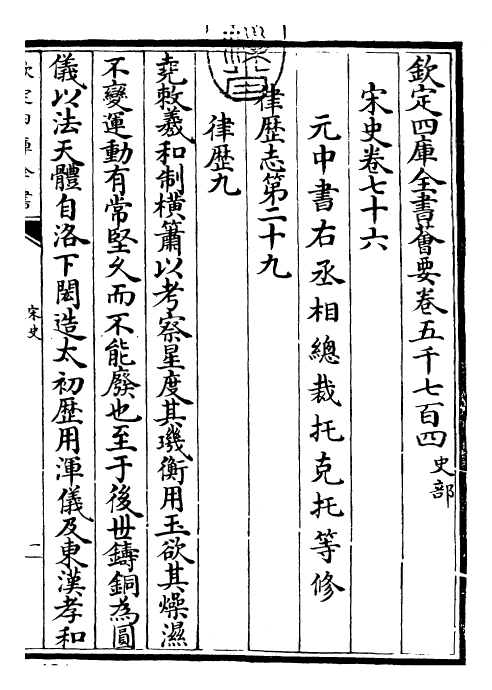 欽定四庫全書薈要卷五千七百四 史部
宋史卷七十六
元中書右丞相總裁托克托等修
律歴志第二十九
律歴九
堯敕羲和制橫簫以考察星度其璣衡用玉欲其燥濕
不變運動有常堅久而不能廢也至于後世鑄銅為圓
儀以法天體自洛下閎造太初歴用渾儀及東漢孝和
欽定四庫全書
宋史